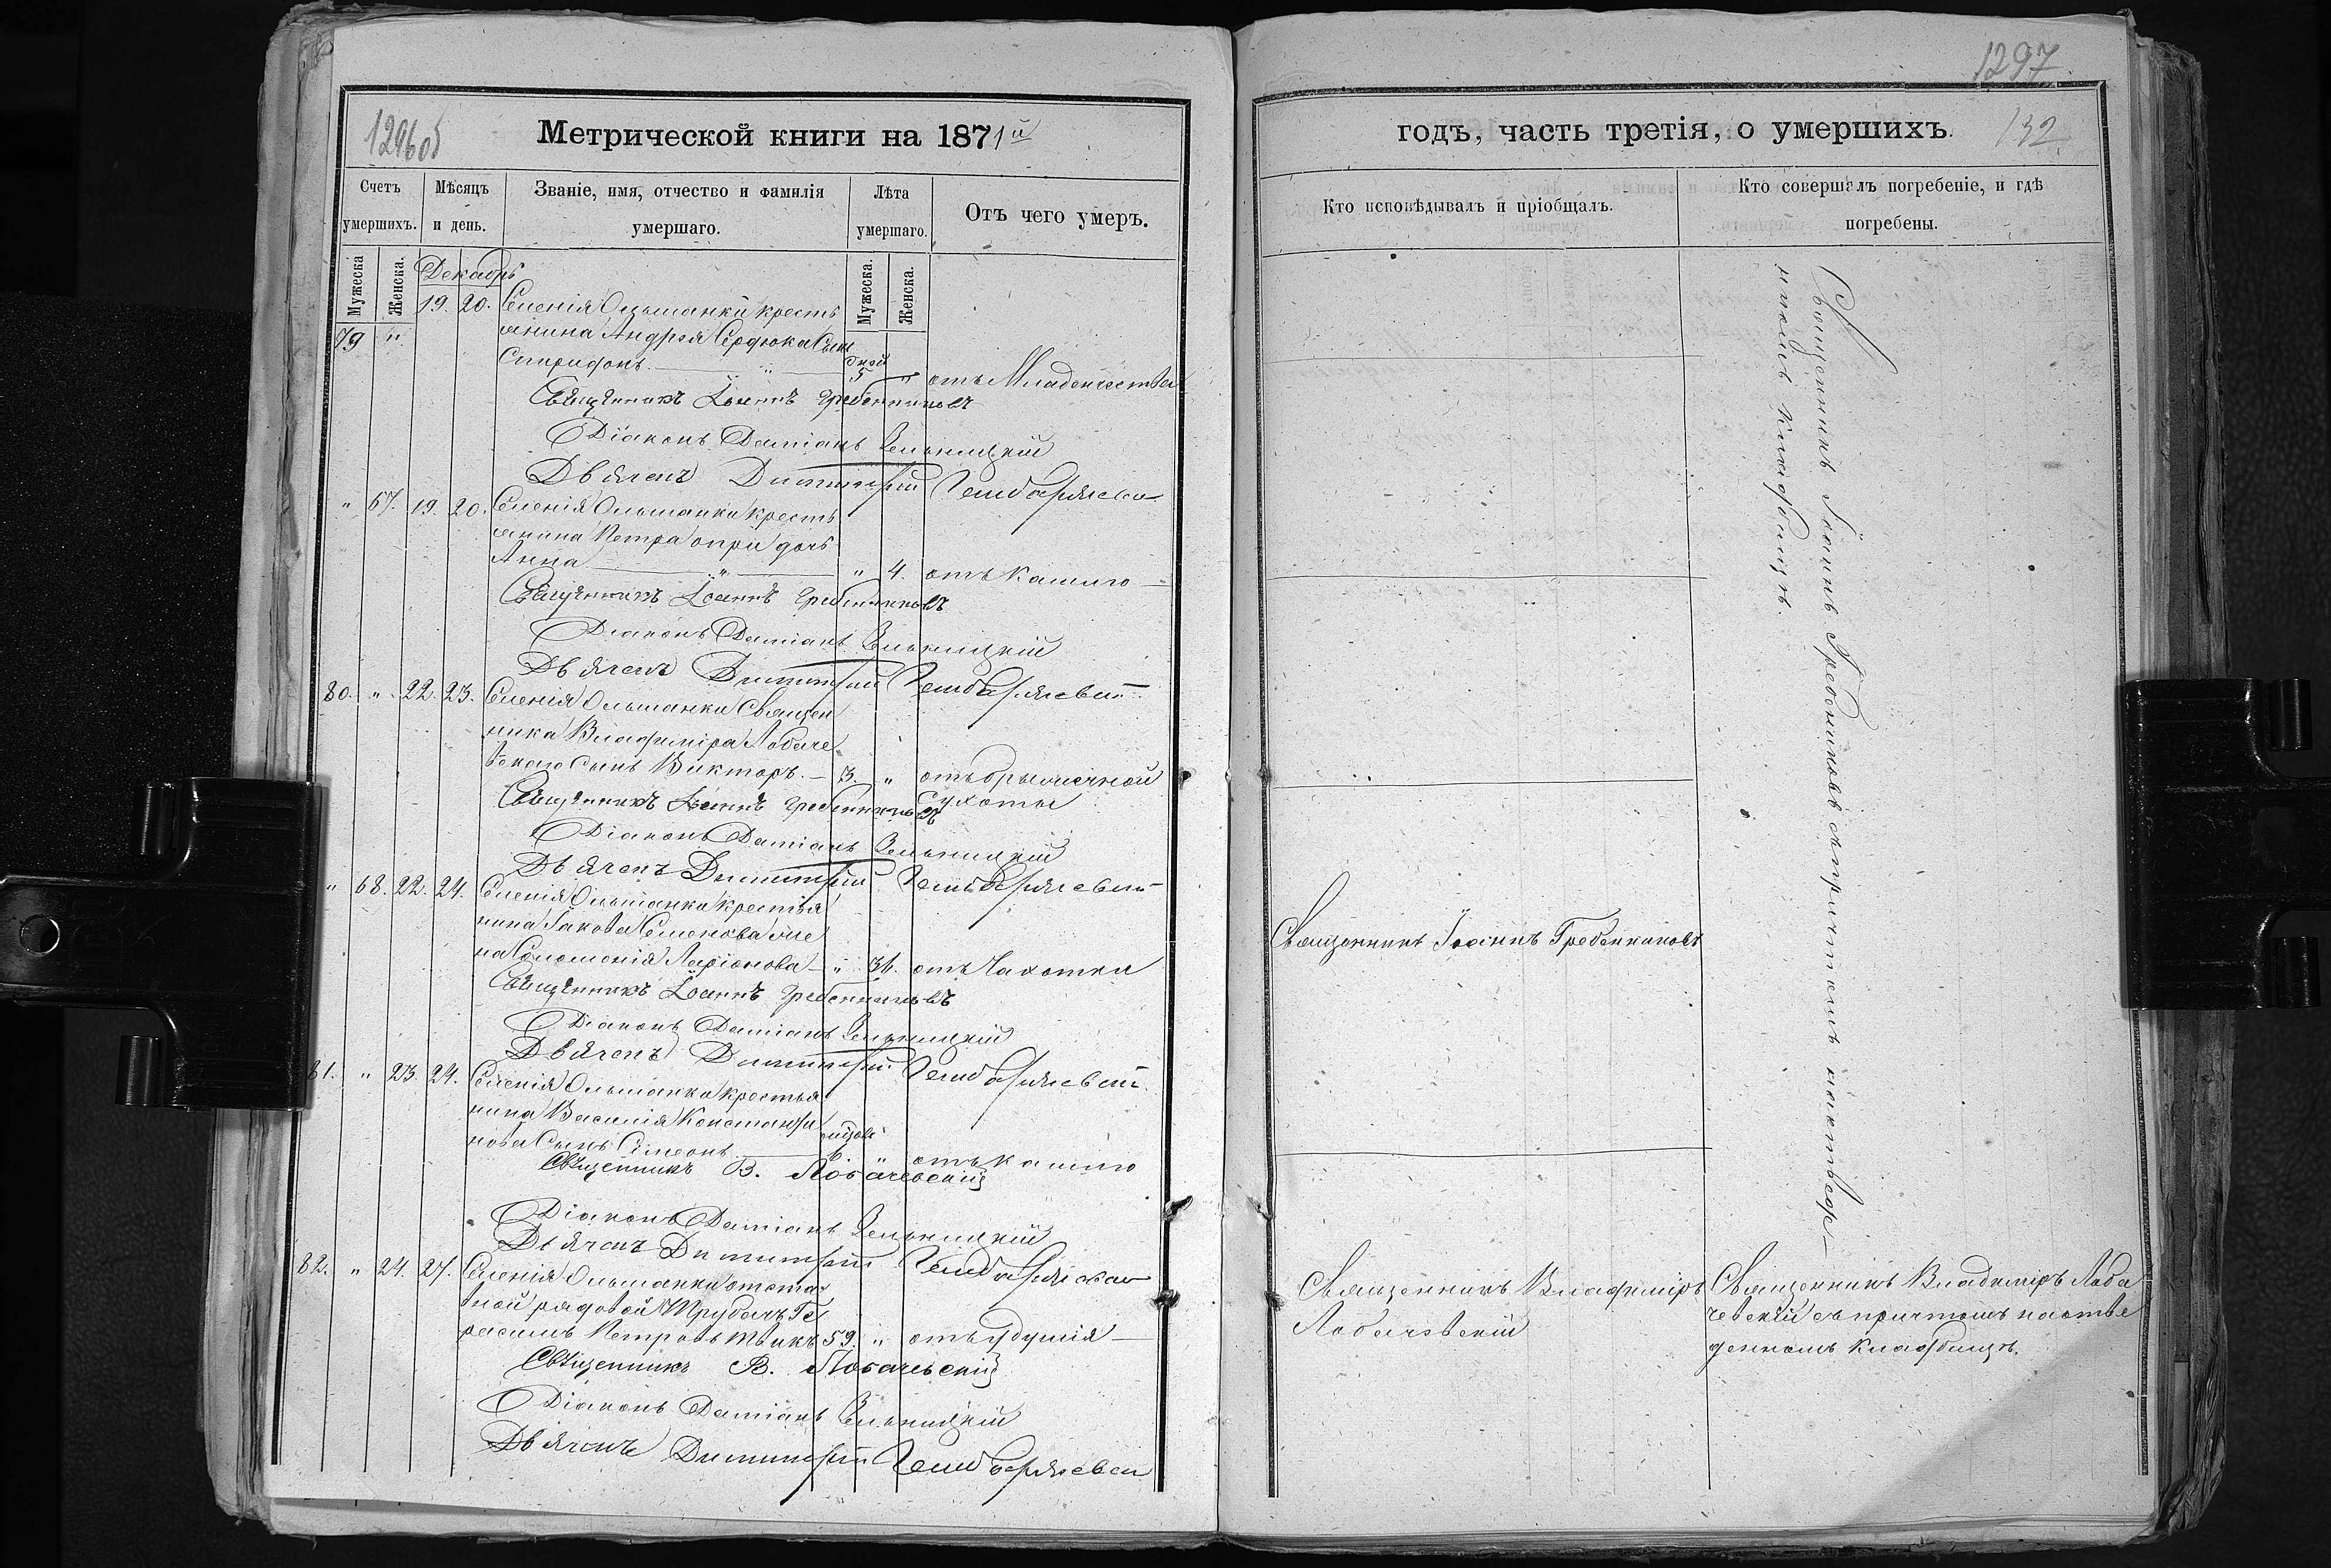 1296об
Метрической книги на 1871й
Счетъ умершихъ.
Мѣсяцъ и день.
Званіе, имя, отчество и фамилія умершаго.
Лѣта умершаго.
Отъ чего умеръ.
Мужеска
Женска.
Декабрь
Мужеска.
Женска.
79 " 19. 20. Селенія Ольшанки кресть
янина Андрея Сердюка Сынъ
Спиридонъ дней 5 " отъ Младенчества
Священникъ Іоаннъ Гребенниковъ
Діаконъ Даміанъ
Дьячекъ Димитрій
" 67. 19. 20. Селенія Ольшанки кресть
янина Петра дочь
Анна " 4. отъ Кашлю
Священникъ Іоаннъ Гребенниковъ
Діаконъ Даміанъ
Дьячекъ Димитрій
80. " 22. 23. Селенія Ольшанки Священ
ника Владиміра Лобаче
вского Сынъ Викторъ. 3. " отъ брыжеечной
Сухоты
Священникъ Іоаннъ Гребенниковъ
Діаконъ Даміанъ
Дьячекъ Димитрій
" 68. 22. 24. Селенія Ольшанки крестья
нина Іакова Семенова же
на Соломонія Ларіонова " 36. отъ Чахотки
Священникъ Іоаннъ Гребенниковъ
Діаконъ Даміанъ
Дьячекъ Димитрій
81. " 23. 24. Селенія Ольшанки крестья
нина Василія Константи
нова Сынъ Симеонъ " отъ кашлю
Священникъ В. Лобачевскій
Діаконъ Даміанъ
Дьячекъ Димитрій
82. " 24. 27. Селенія Ольшанки отста
вной рядовой Трубачъ Ге
расимъ Петровъ 59. " отъ удушія
Священникъ В. Лобачевскій
Діаконъ Даміанъ
Дьячекъ Димитрій
1297
годъ, часть третія, о умершихъ.
132
Кто исповѣдывалъ и пріобщалъ.
Кто совершалъ погребеніе, и гдѣ погребены.
Священникъ Іоаннъ Гребенниковъ съ причтомъ на отведен
номъ кладбищѣ.
Священникъ Іоаннъ Гребенниковъ
Священникъ Владиміръ
Лобачевскій
Священникъ Владиміръ Лоба
чевскій съ причтомъ на отве
денномъ кладбищѣ.